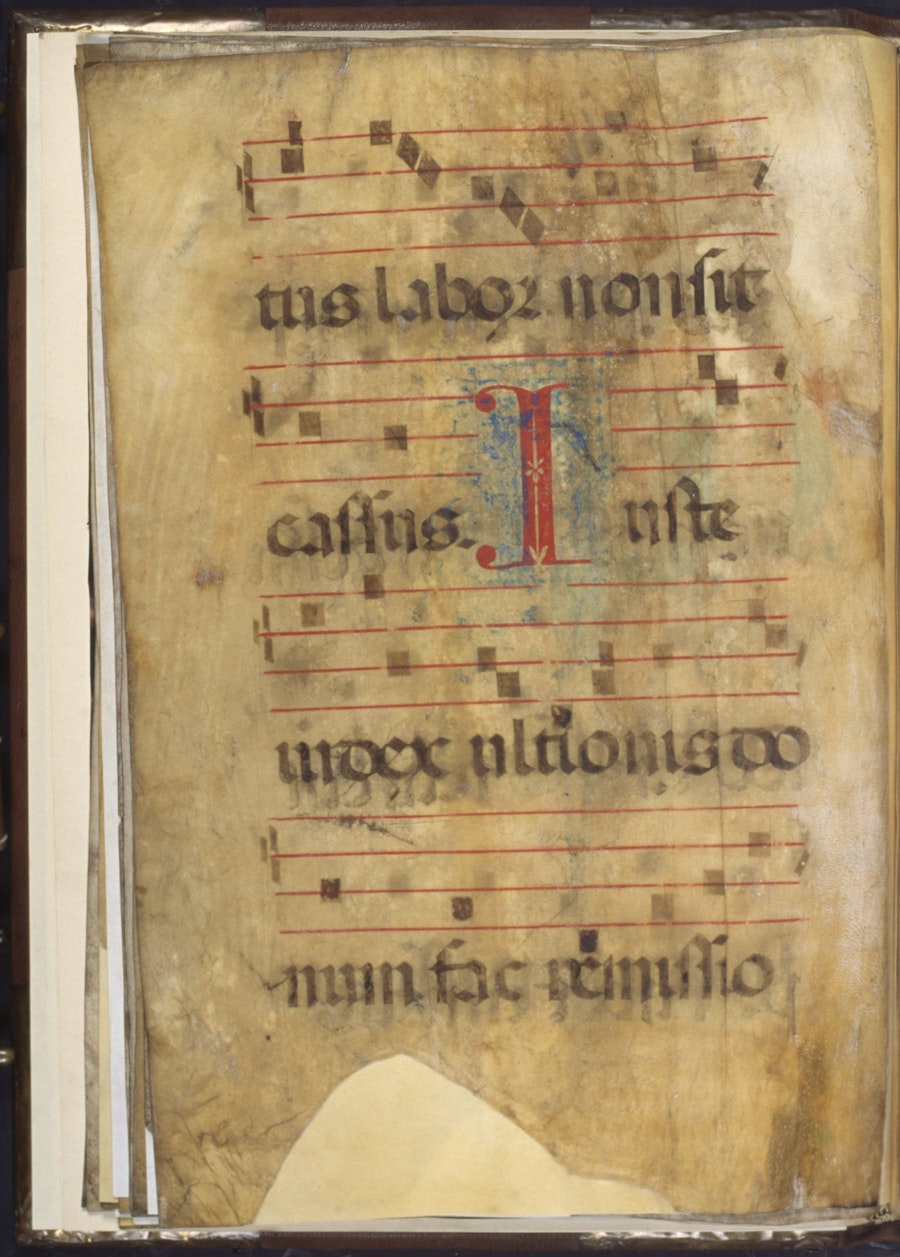 tus labor non sit
cassus. Iuste
iudex ultionis do
num fac remissio